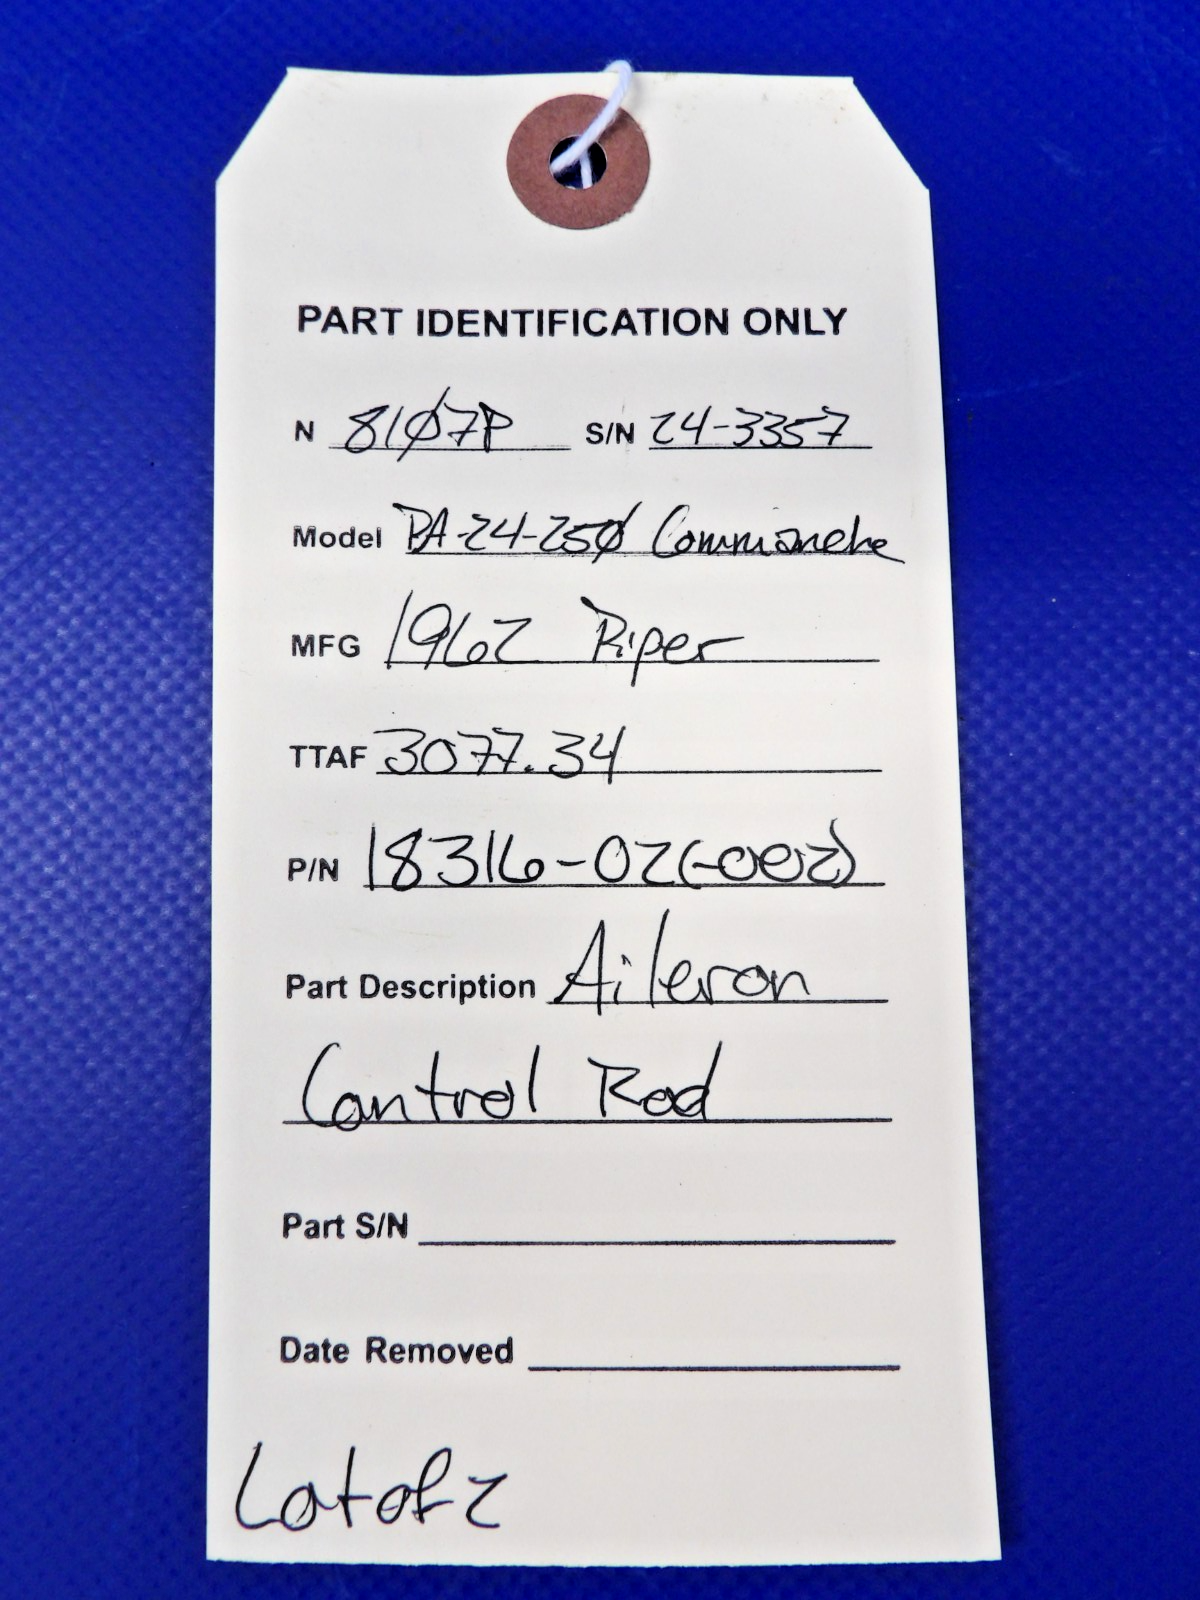 PART IDENTIFICATION ONLY
N 81Ø7P S/N 24-3357
Model PA-24-25Ø Commanche
MFG 1962 Piper
TTAF 3077.34
P/N 18316-02(-002)
Part Description Aileron
Control Rod
Part S/N
Date Removed
Lot of 2